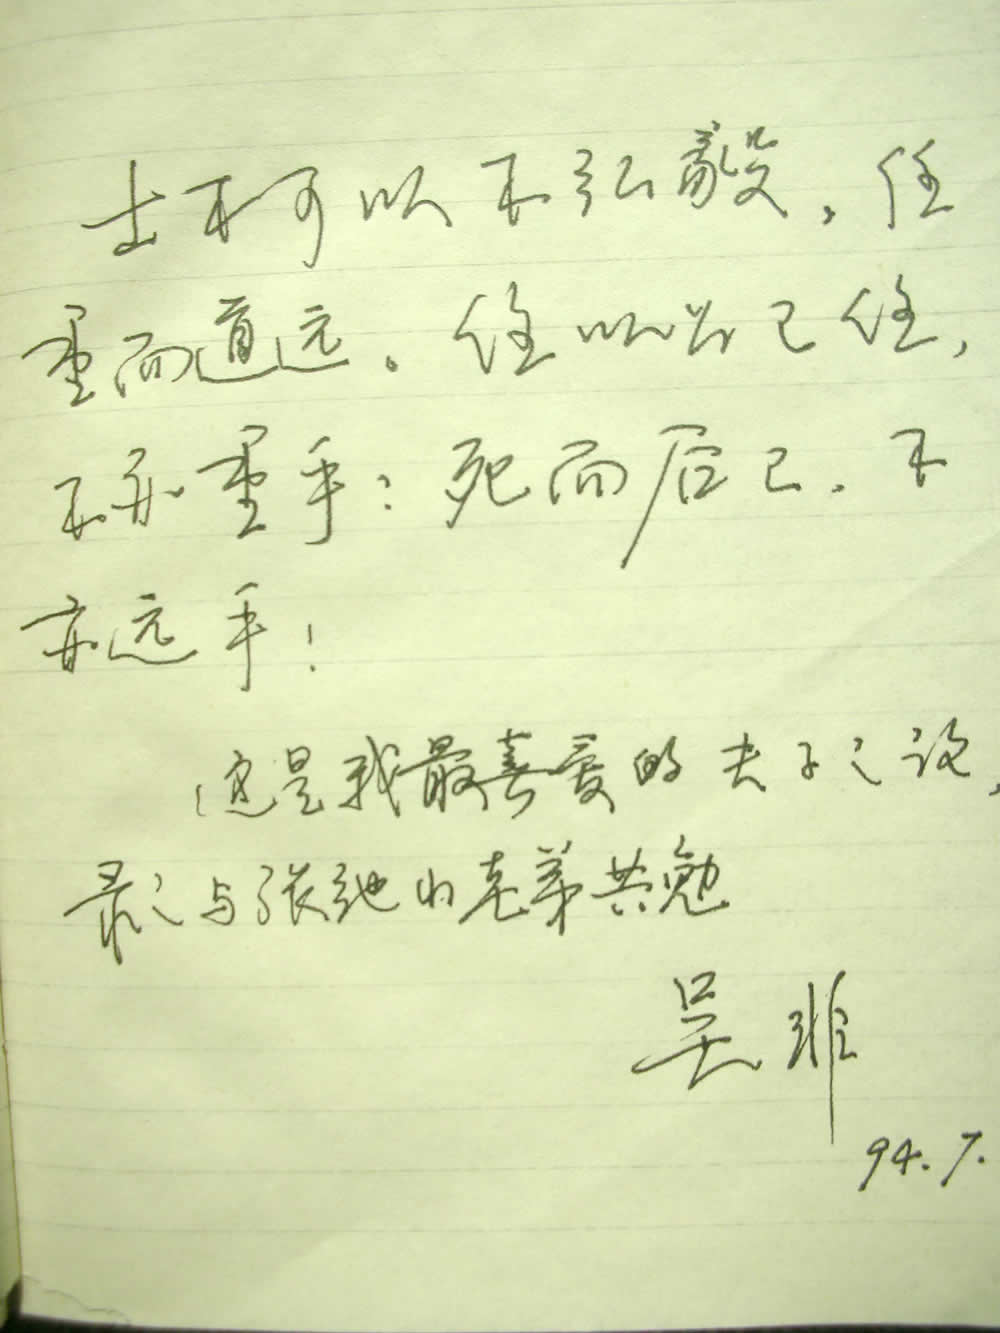 士不可以不弘毅,任
重而道远。任以为己任,
不亦重乎?死而后已,不
亦远乎!
这是我最喜爱的夫子之说,
录之与张弛小老弟共勉
吴非
94.7.